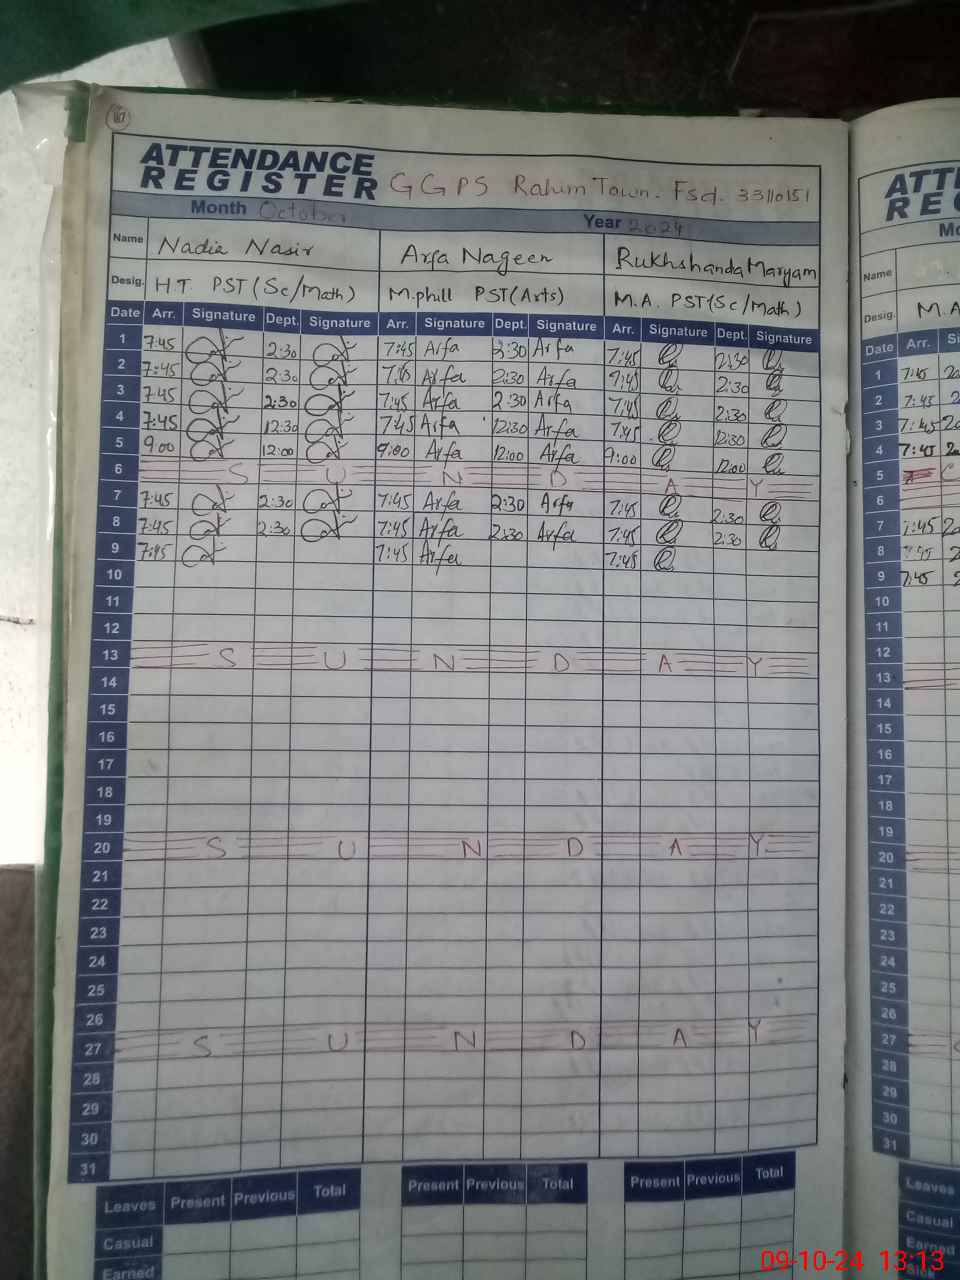 ATTENDANCE
REGISTER GGPS Rahim Town. Fsd. 33110151
Month October Year 2024
Name Nadia Nasir Arfa Nageen Rukhshanda Maryam
Desig. H.T. PST (Sc/Math) M.phill PST (Arts) M.A. PST (Sc/Math)
Date Arr. Signature Dept. Signature Arr. Signature Dept. Signature Arr. Signature Dept. Signature
1 7:45 2:30 7:45 Arfa 2:30 Arfa 7:45 2:30
2 7:45 2:30 7:45 Arfa 2:30 Arfa 7:45 2:30
3 7:45 2:30 7:45 Arfa 2:30 Arfa 7:45 2:30
4 7:45 12:30 7:45 Arfa 12:30 Arfa 7:45 12:30
5 9:00 12:00 9:00 Arfa 12:00 Arfa 9:00 12:00
6 S U N D A Y
7 7:45 2:30 7:45 Arfa 2:30 Arfa 7:45 2:30
8 7:45 2:30 7:45 Arfa 2:30 Arfa 7:45 2:30
9 7:45 7:45 Arfa 7:45
10
11
12
13 S U N D A Y
14
15
16
17
18
19
20 S U N D A Y
21
22
23
24
25
26
27 S U N D A Y
28
29
30
31
Leaves Present Previous Total Present Previous Total Present Previous Total
Casual
Earned
Name
Desig. M.A
Date Arr.
1 7:45
2 7:45
3 7:45
4 7:45
5
6
7 7:45
8 7:45
9 7:45
10
11
12
13
14
15
16
17
18
19
20
21
22
23
24
25
26
27
28
29
30
31
Leaves
Casual
Earned
09-10-24 13:13